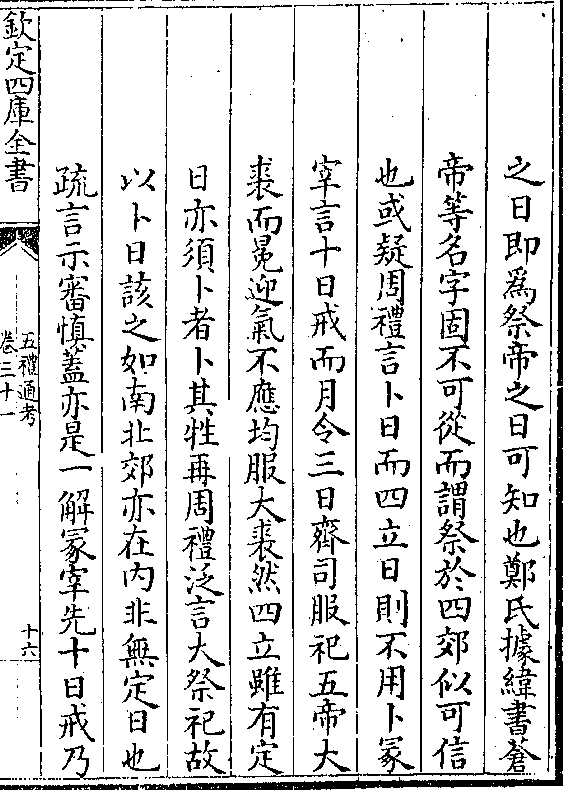 之日即爲祭帝之日可知也鄭氏據緯書蒼
帝等名字固不可從而謂祭於四郊似可信
也或疑周禮言卜日而四立日則不用卜冡
宰言十日戒而月令三日齊司服祀五帝大
裘而冕迎氣不應均服大裘然四立雖有定
日亦須卜者卜其牲再周禮泛言大祭祀故
以卜日該之如南北郊亦在内非無定日也
疏言示審慎蓋亦是一解冡宰先十日戒乃
欽定四庫全書
五禮通考
卷三十一
十六